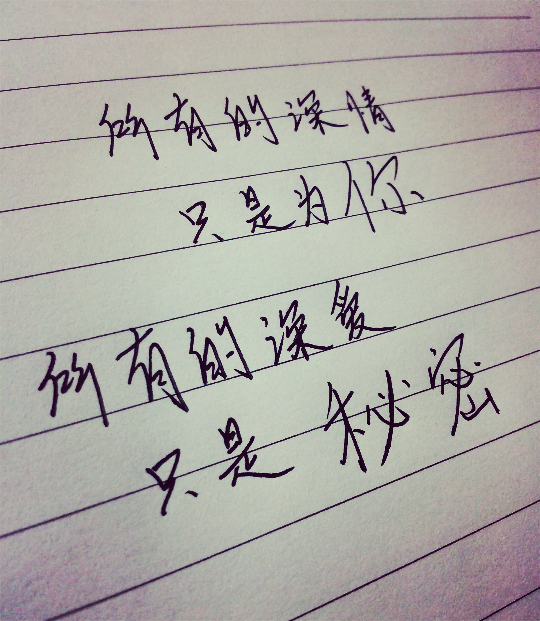 所有的深情
只是为你
所有的深爱
只是秘密